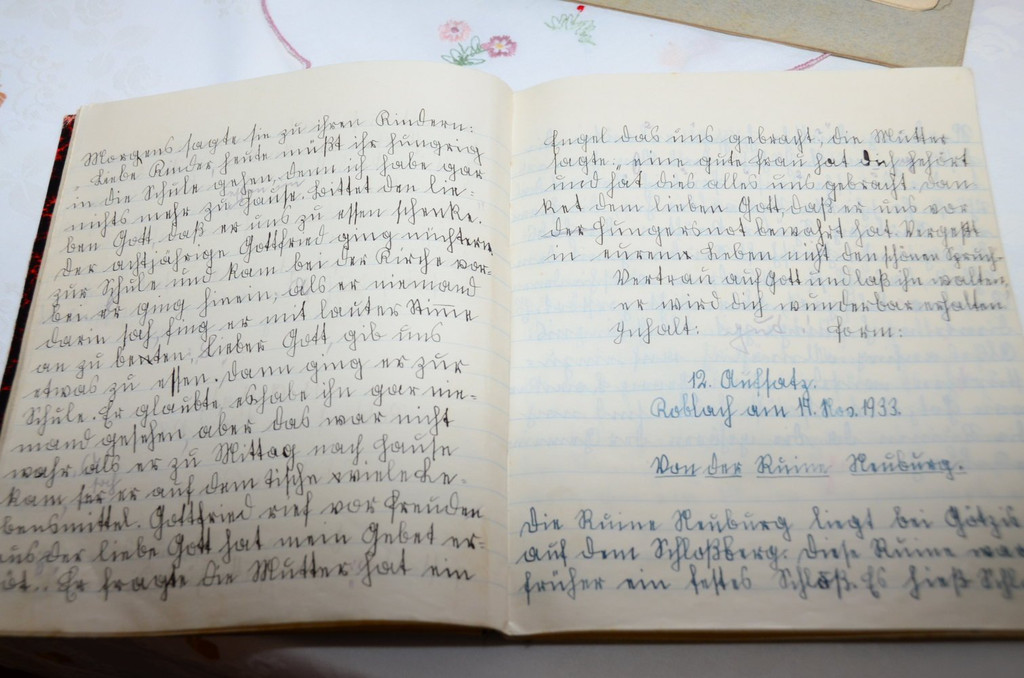 Morgens sagte sie zu ihren Kindern:
„Liebe Kinder, heute müßt ihr hungrig
in die Schule gehen, denn ich habe gar
nichts mehr zu Hause. Bittet den lie-
ben Gott, daß er uns zu essen schenke.
Der achtjährige Gottfried ging nüchtern
zur Schule und kam bei der Kirche vor-
bei er ging hinein, als er niemand
darin sah, fing er mit lauter Stimme
an zu beten, lieber Gott, gib uns
etwas zu essen. Dann ging er zur
Schule. Er glaubte, es habe ihn gar nie-
mand gesehen, aber das war nicht
wahr. als er zu Mittag nach Hause
kam, er auf dem Tische viele Le-
bensmittel. Gottfried rief vor Freuden
aus der liebe Gott hat mein Gebet er-
Er fragte die Mutter, hat ein
Engel das uns gebracht, die Mutter
sagte:, eine gute Frau hat dich gehört
und hat dies alles uns gebracht. Dan
ket dem lieben Gott, daß er uns vor
der Hungersnot bewahrt hat. Vergeßt
in eurem Leben nicht den schönen Spruch
Vertrau auf Gott und laß ihn walten,
er wird dich wunderbar erhalten
Inhalt: Form:
12. Aufsatz.
Koblach am Nov. 1933.
Von der Ruine Neuburg.
Die Ruine Neuburg liegt bei Götzis
auf dem Schloßberg. Diese Ruine war
früher ein festes Schloß. Es hieß Schl